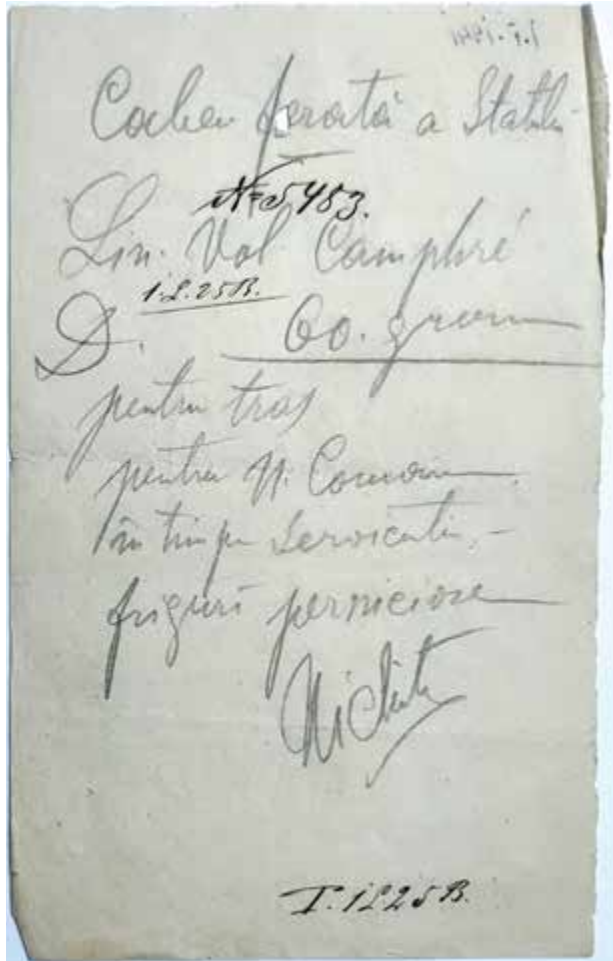 Calea ferată a Statului
№ 5483.
Lin. Vol Camphré
1 L. 25 B.
D. 60. gram
pentru tras
pentru N.
în timpu serviciului. -
friguri pernicioase
I. 1 L 25 B.